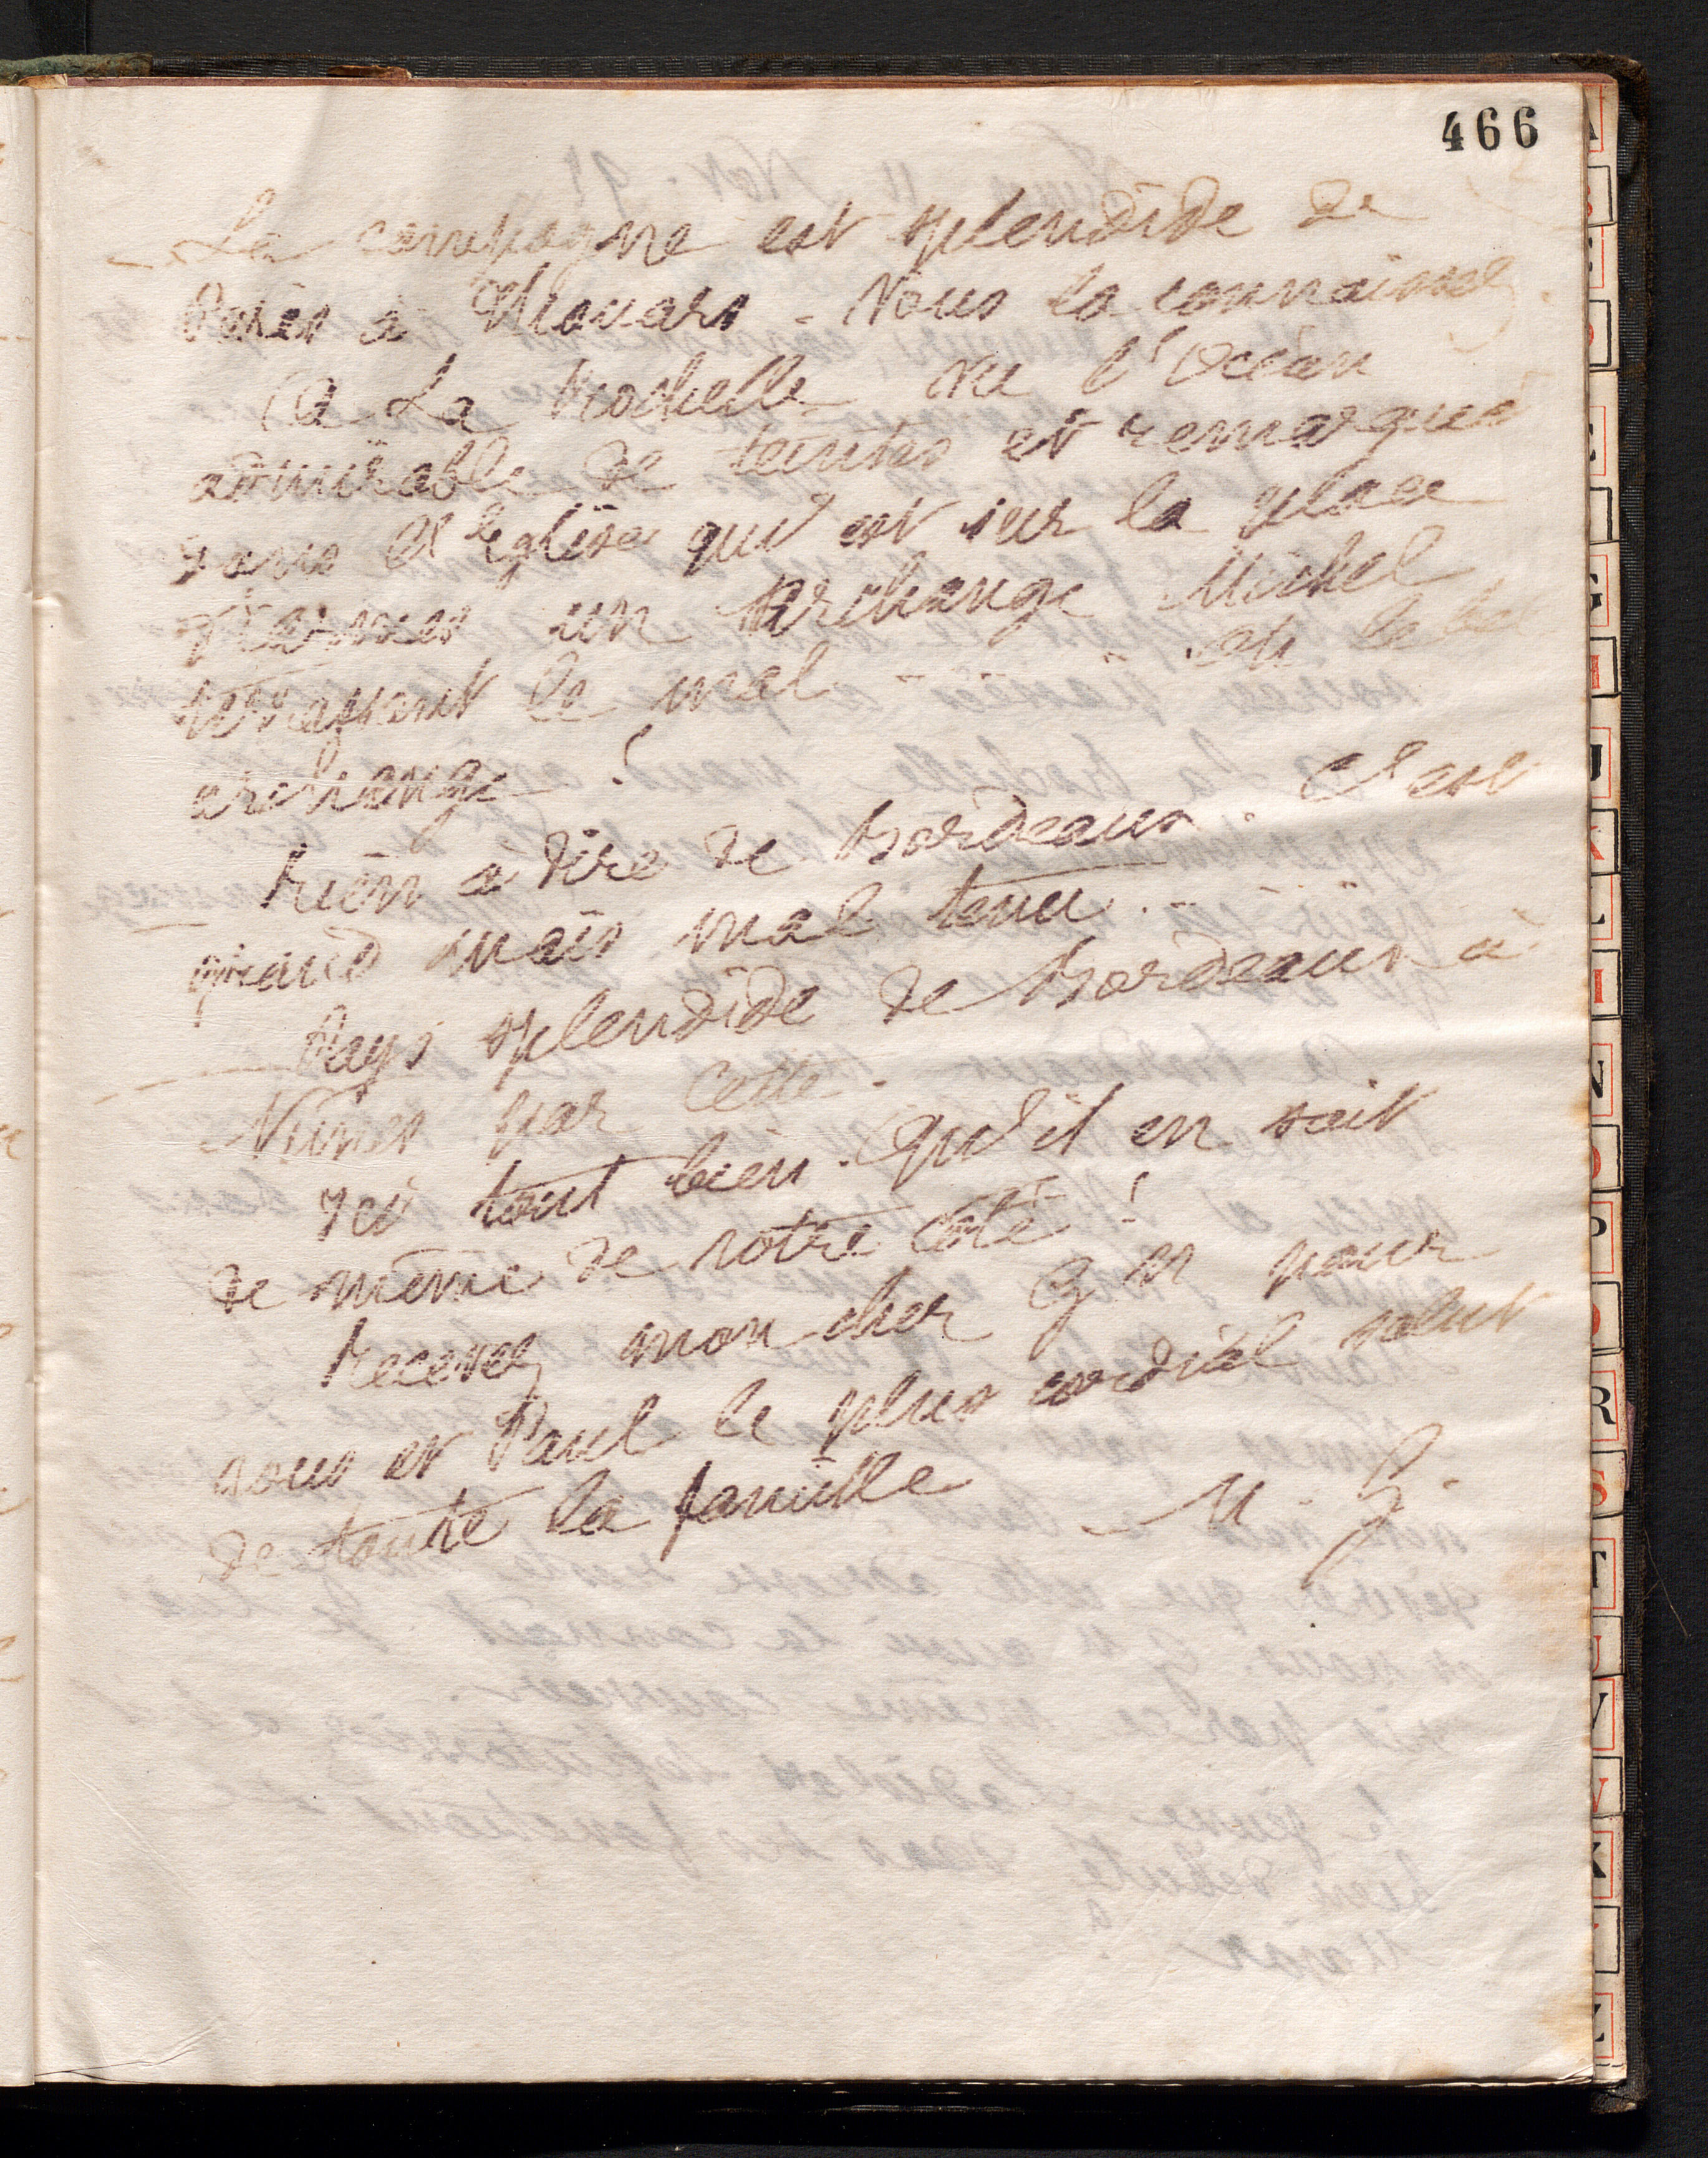 466
La campagne est splendide de
Paris à Thouars. Vous la connaissez.
A La Rochelle vu l'Océan
admirable de teintes et remarqué
dans l'Eglise qui est sur la place
d'armes un Archange Michel
terrassant le mal - - - oh le bel
archange !
Rien à dire de Bordeaux. C'est
grand mais mal tenu. -
Pays splendide de Bordeaux à
Nîmes par Cette.
Ici tout bien. Qu'il en soit
de même de votre côté !
Recevez mon cher Gn pour
vous et Paul le plus cordial salut
de toute la famille M. G.